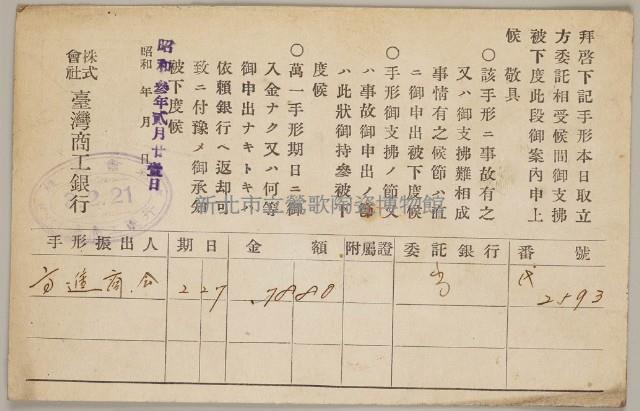 拜啓下記手形本日取立
方委託相受候間御支拂
被下度此段御案內申上
候 敬具
〇該手形ニ事故有之
又ハ御支拂難相成
事情有之候節ハ直
ニ御申出被下度候
〇手形御支拂ノ節又
ハ事故御申出ノ節
ハ此狀御持參被下
度候
〇萬一手形期日ニ御
入金ナク又ハ何等
御申出ナキトキハ
依賴銀行ヘ返却可
致ニ付豫メ御承知
被下度候
昭和參年貳月廿壹日
昭和 年 月 日
株式會社 臺灣商工銀行
2.21
新北市立鶯歌陶瓷博物館
手形振出人 期日 金額 附屬證 委託銀行 番號
商會 2 27 78.80 2593